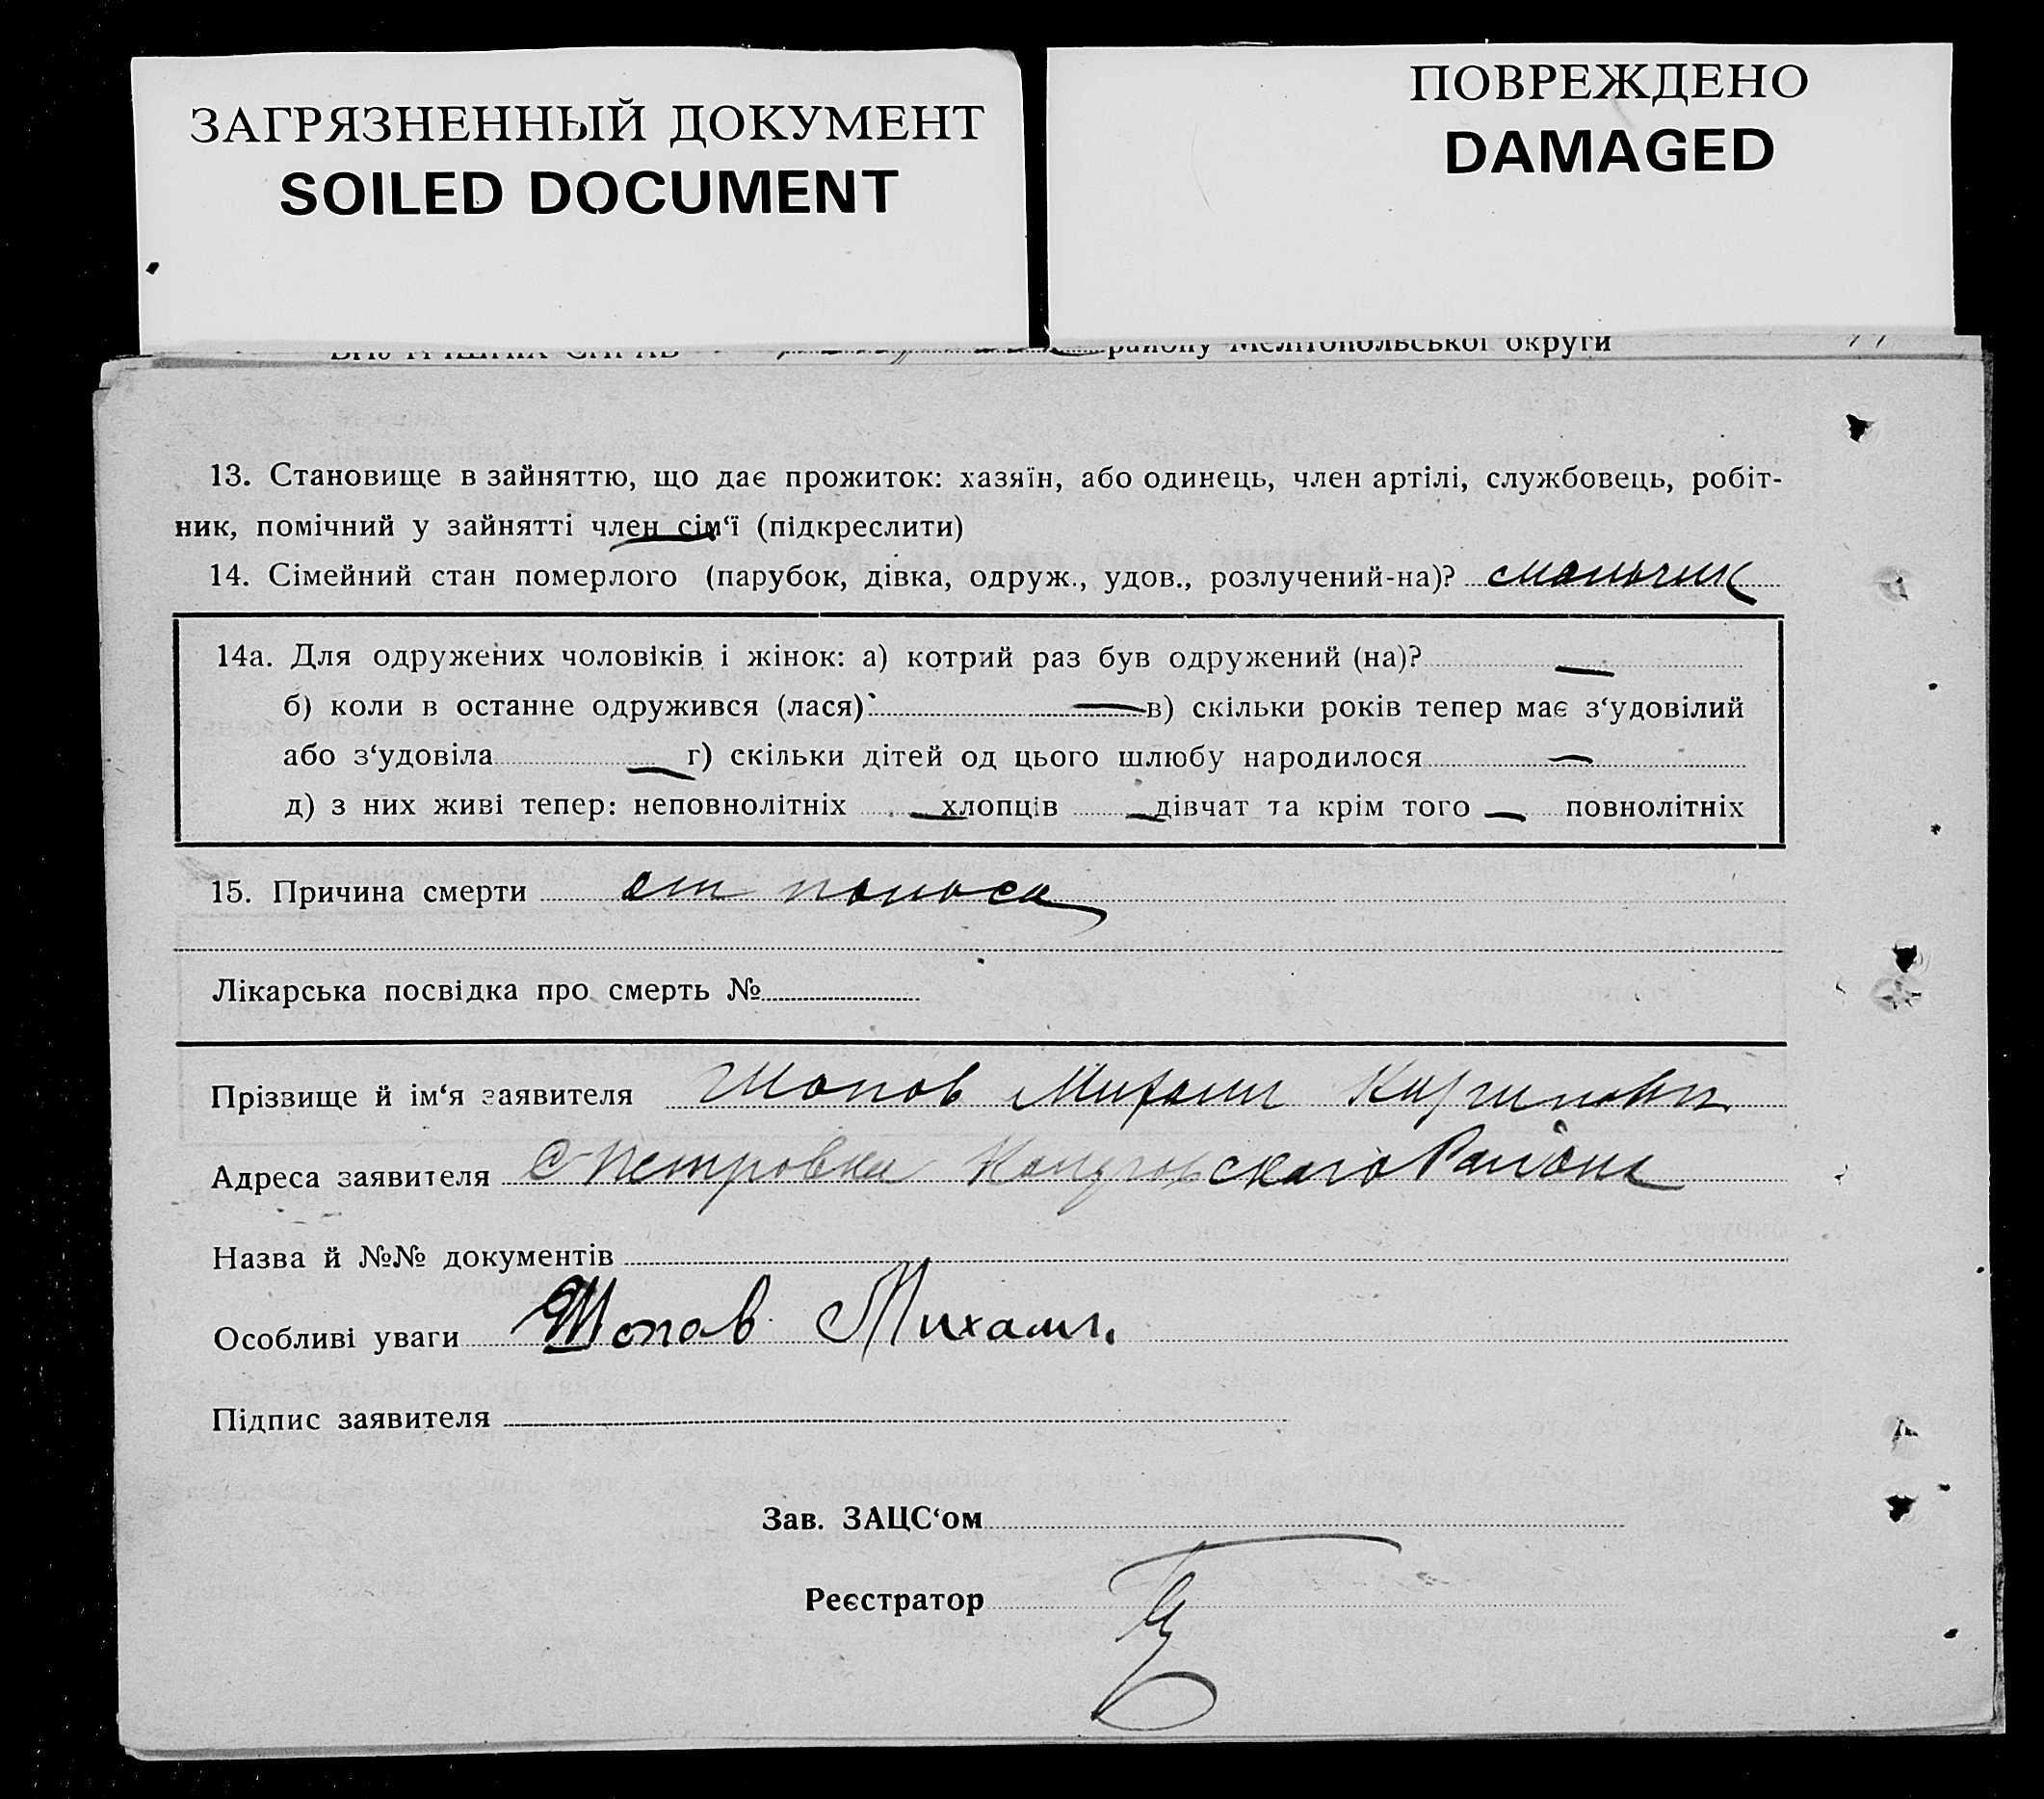 ЗАГРЯЗНЕННЫЙ ДОКУМЕНТ
SOILED DOCUMENT
ПОВРЕЖДЕНО
DAMAGED
району Мелітопольської округи
13. Становище в зайняттю, що дає прожиток: хазяїн, або одинець, член артілі, службовець, робіт-
ник, помічний у зайнятті член сім‘ї (підкреслити)
14. Сімейний стан померлого (парубок, дівка, одруж., удов., розлучений-на)? мальчик
14а. Для одружених чоловіків і жінок: а) котрий раз був одружений (на)? —
б) коли в останне одружився (лася) — в) скільки років тепер має з‘удовілий
або з‘удовіла — г) скільки дітей од цього шлюбу народилося —
д) з них живі тепер: неповнолітніх — хлопців — дівчат та крім того — повнолітніх
15. Причина смерти от поноса
Лікарська посвідка про смерть №
Прізвище й ім‘я заявителя Шопов Михаил
Адреса заявителя С Петровка Района
Назва й №№ документів
Особливі уваги Шопов Михаил.
Підпис заявителя
Зав. ЗАЦС‘ом
Реєстратор